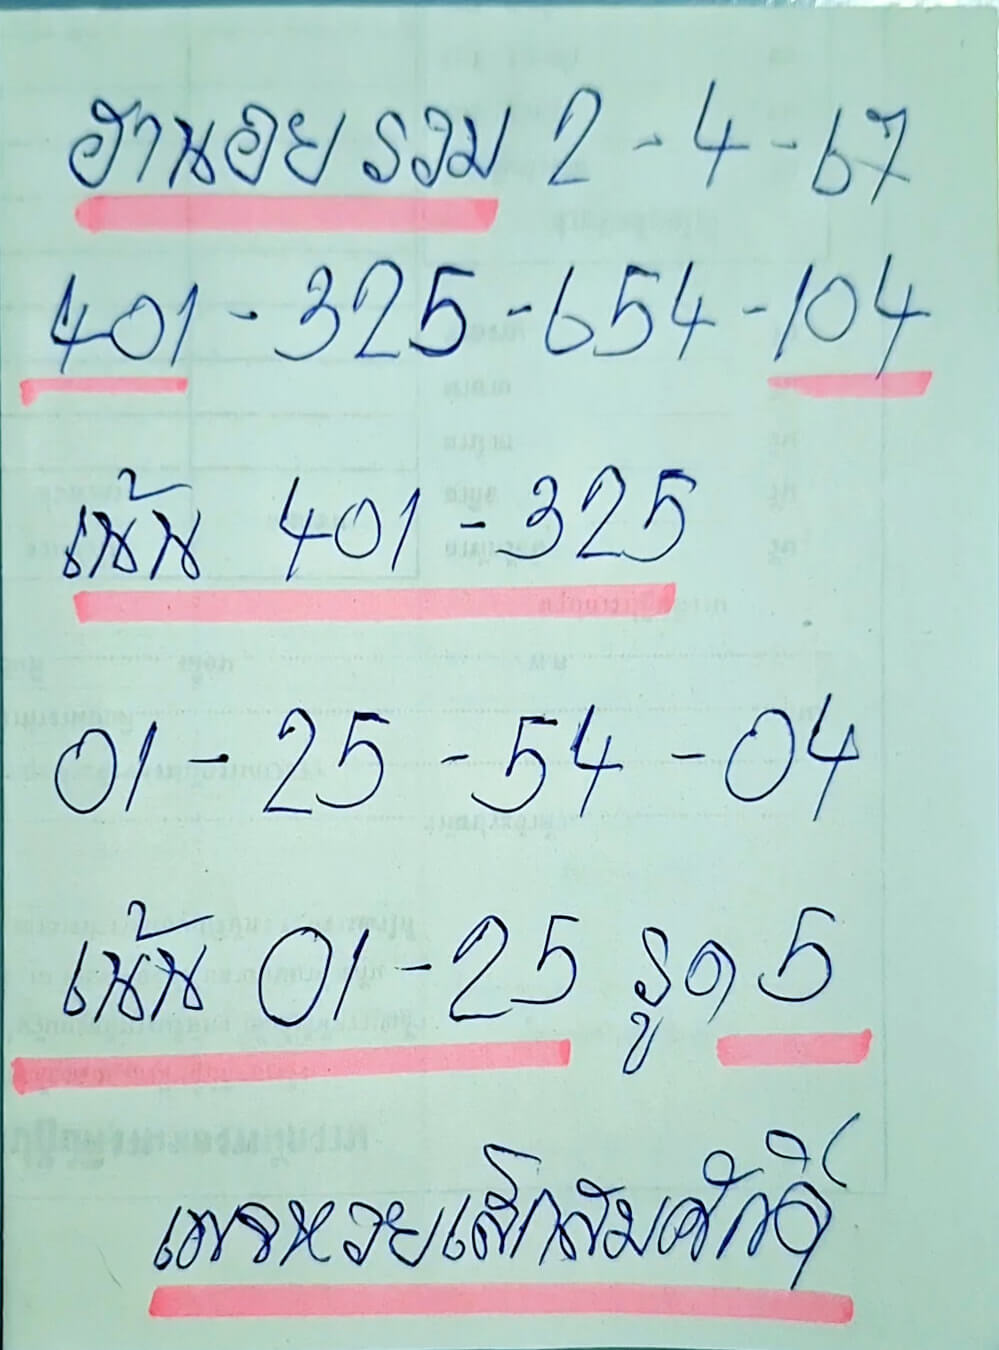 ฮานอย รวม 2 - 4 - 67
401 - 325 - 654 - 104
เน้น 401 - 325
01 - 25 - 54 - 04
เน้น 01 - 25 รูด 5
เพจหวยเล็กสมศักดิ์